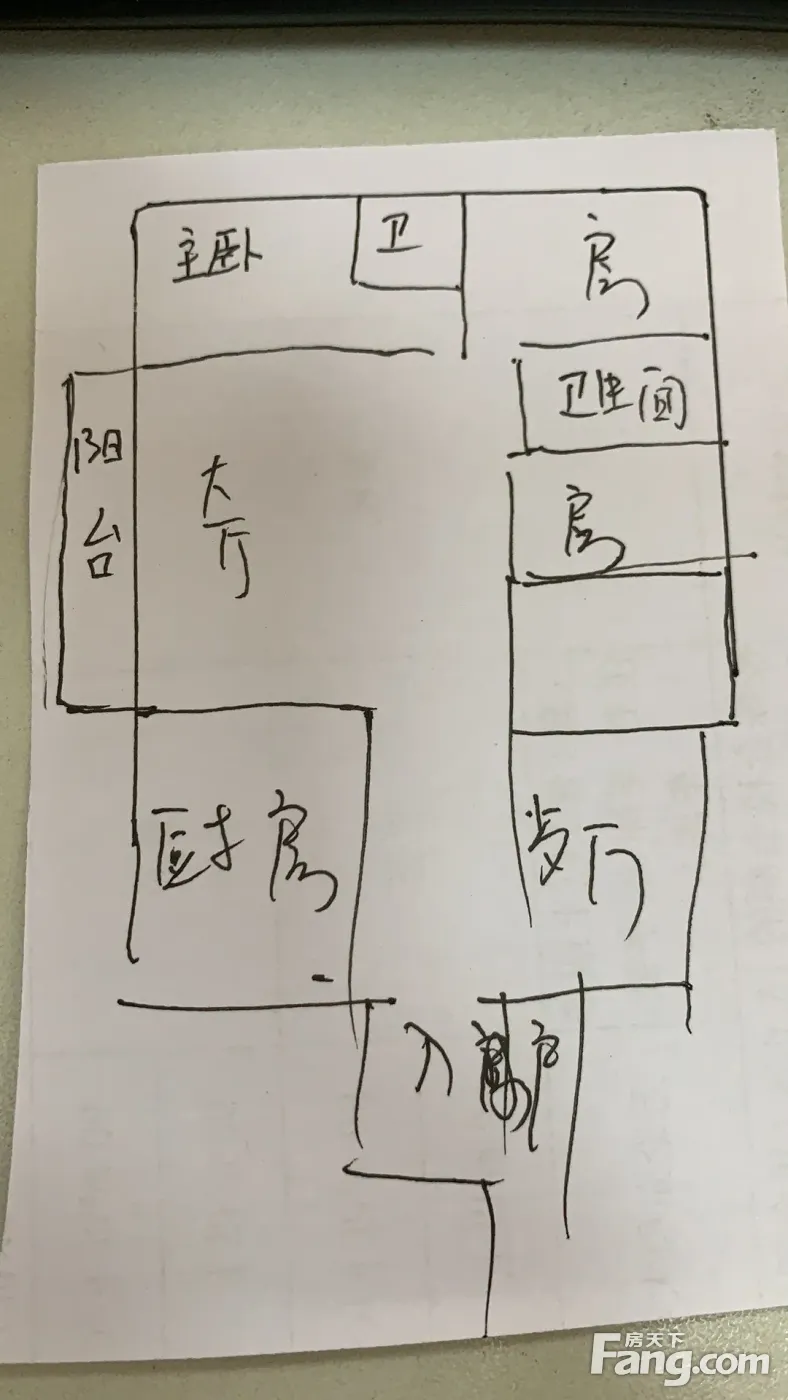 主卧
卫
房
卫生间
阳台
大厅
房
厨房
厅
入户
房天下
Fang.com